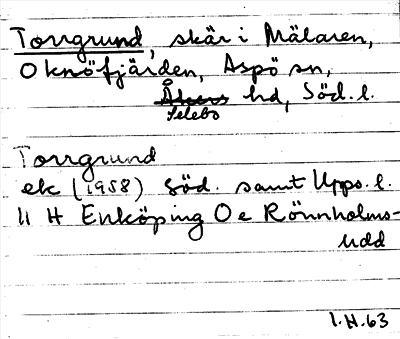 Torrgrund, skär i Mälaren,
Oknöfjärden, Aspö sn,
Åkers hd, Söd. l.
Selebo
Torrgrund
ek (1958) Söd. samt Upps. l.
11 H Enköping O e Rönnholms-
udd
1.H.63